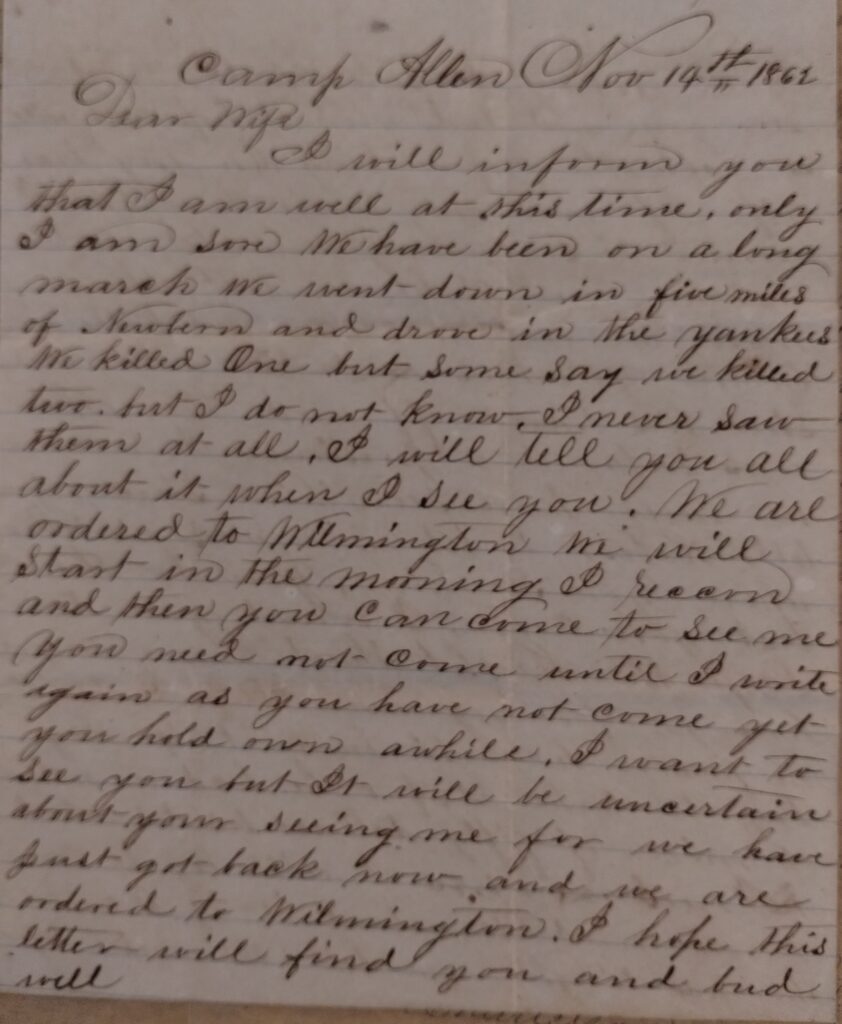 Camp Allen Nov 14th 1862
Dear Wife
I will inform you
that I am well at this time. only
I am sore We have been on a long
march We went down in five miles
of Newbern and drove in the yankees
We killed One but some say we killed
two. but I do not know. I never saw
them at all. I will tell you all
about it when I see you. We are
ordered to Wilmington We will
Start in the morning I reccon
and then you can come to see me
you need not come until I write
again as you have not come yet
you hold own awhile. I want to
see you but It will be uncertain
about your seeing me for we have
Just got back now and we are
ordered to Wilmington. I hope this
letter will find you and bud
well